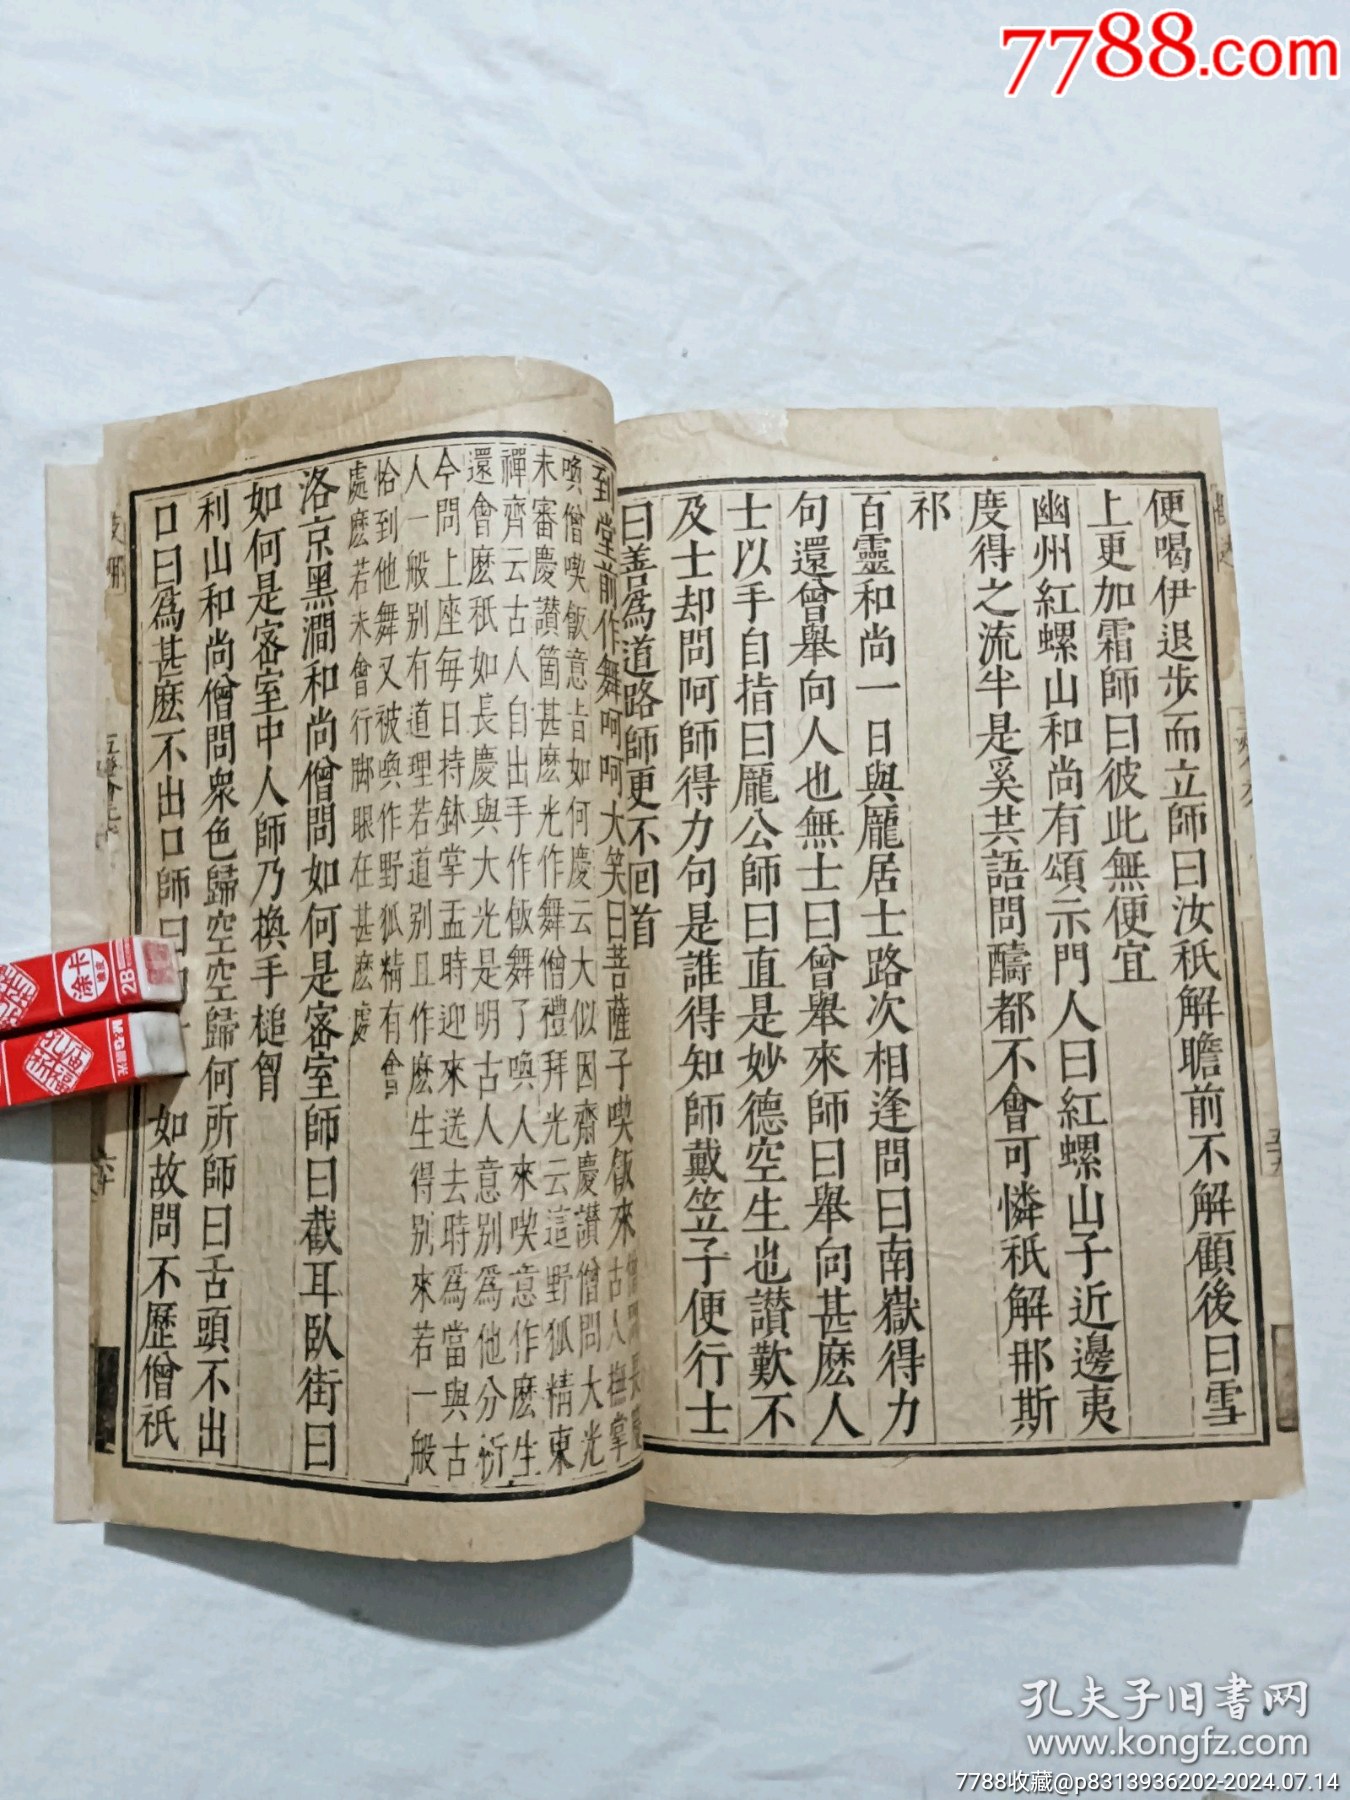 7788.com
便喝伊退步而立師曰汝祇解瞻前不解顧後曰雪
上更加霜師曰彼此無便宜
幽州紅螺山和尚有頌示門人曰紅螺山子近邊夷
度得之流半是奚共語問醻都不會可憐祇解那斯
祁
百靈和尚一日與龐居士路次相逢問曰南嶽得力
句還曾舉向人也無士曰曾舉來師曰舉向甚麽人
士以手自指曰龐公師曰直是妙德空生也讚歎不
及士却問阿師得力句是誰得知師戴笠子便行士
曰善爲道路師更不回首
到堂前作舞呵呵大笑曰菩薩子喫飯來
古人撫掌
喚僧喫飯意旨如何慶云大似因齋慶讚僧問大光
未審慶讚箇甚麽光作舞僧禮拜光云這野狐精東
禪齊云古人自出手作飯舞了喚人來喫意作麽生
還會麽祇如長慶與大光是明古人意別爲他分析
今問上座每日持鉢掌盂時迎來送去時爲當與古
人一般別有道理若道別且作麽生得別來若一般
恰到他舞又被喚作野狐精有會
處麽若未會行脚眼在甚麽處
洛京黑澗和尚僧問如何是密室師曰截耳臥街曰
如何是密室中人師乃換手槌胷
利山和尚僧問衆色歸空空歸何所師曰舌頭不出
口曰爲甚麽不出口師曰
如故問不歷僧祇
涂卡
2B
孔庙祈福
孔夫子旧書网
www.kongfz.com
7788收藏@p8313936202-2024.07.14